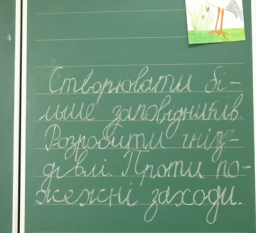 Створювати бі-
льше заповідників.
Розробити гніз-
дівлі. Проти по-
жежні заходи.